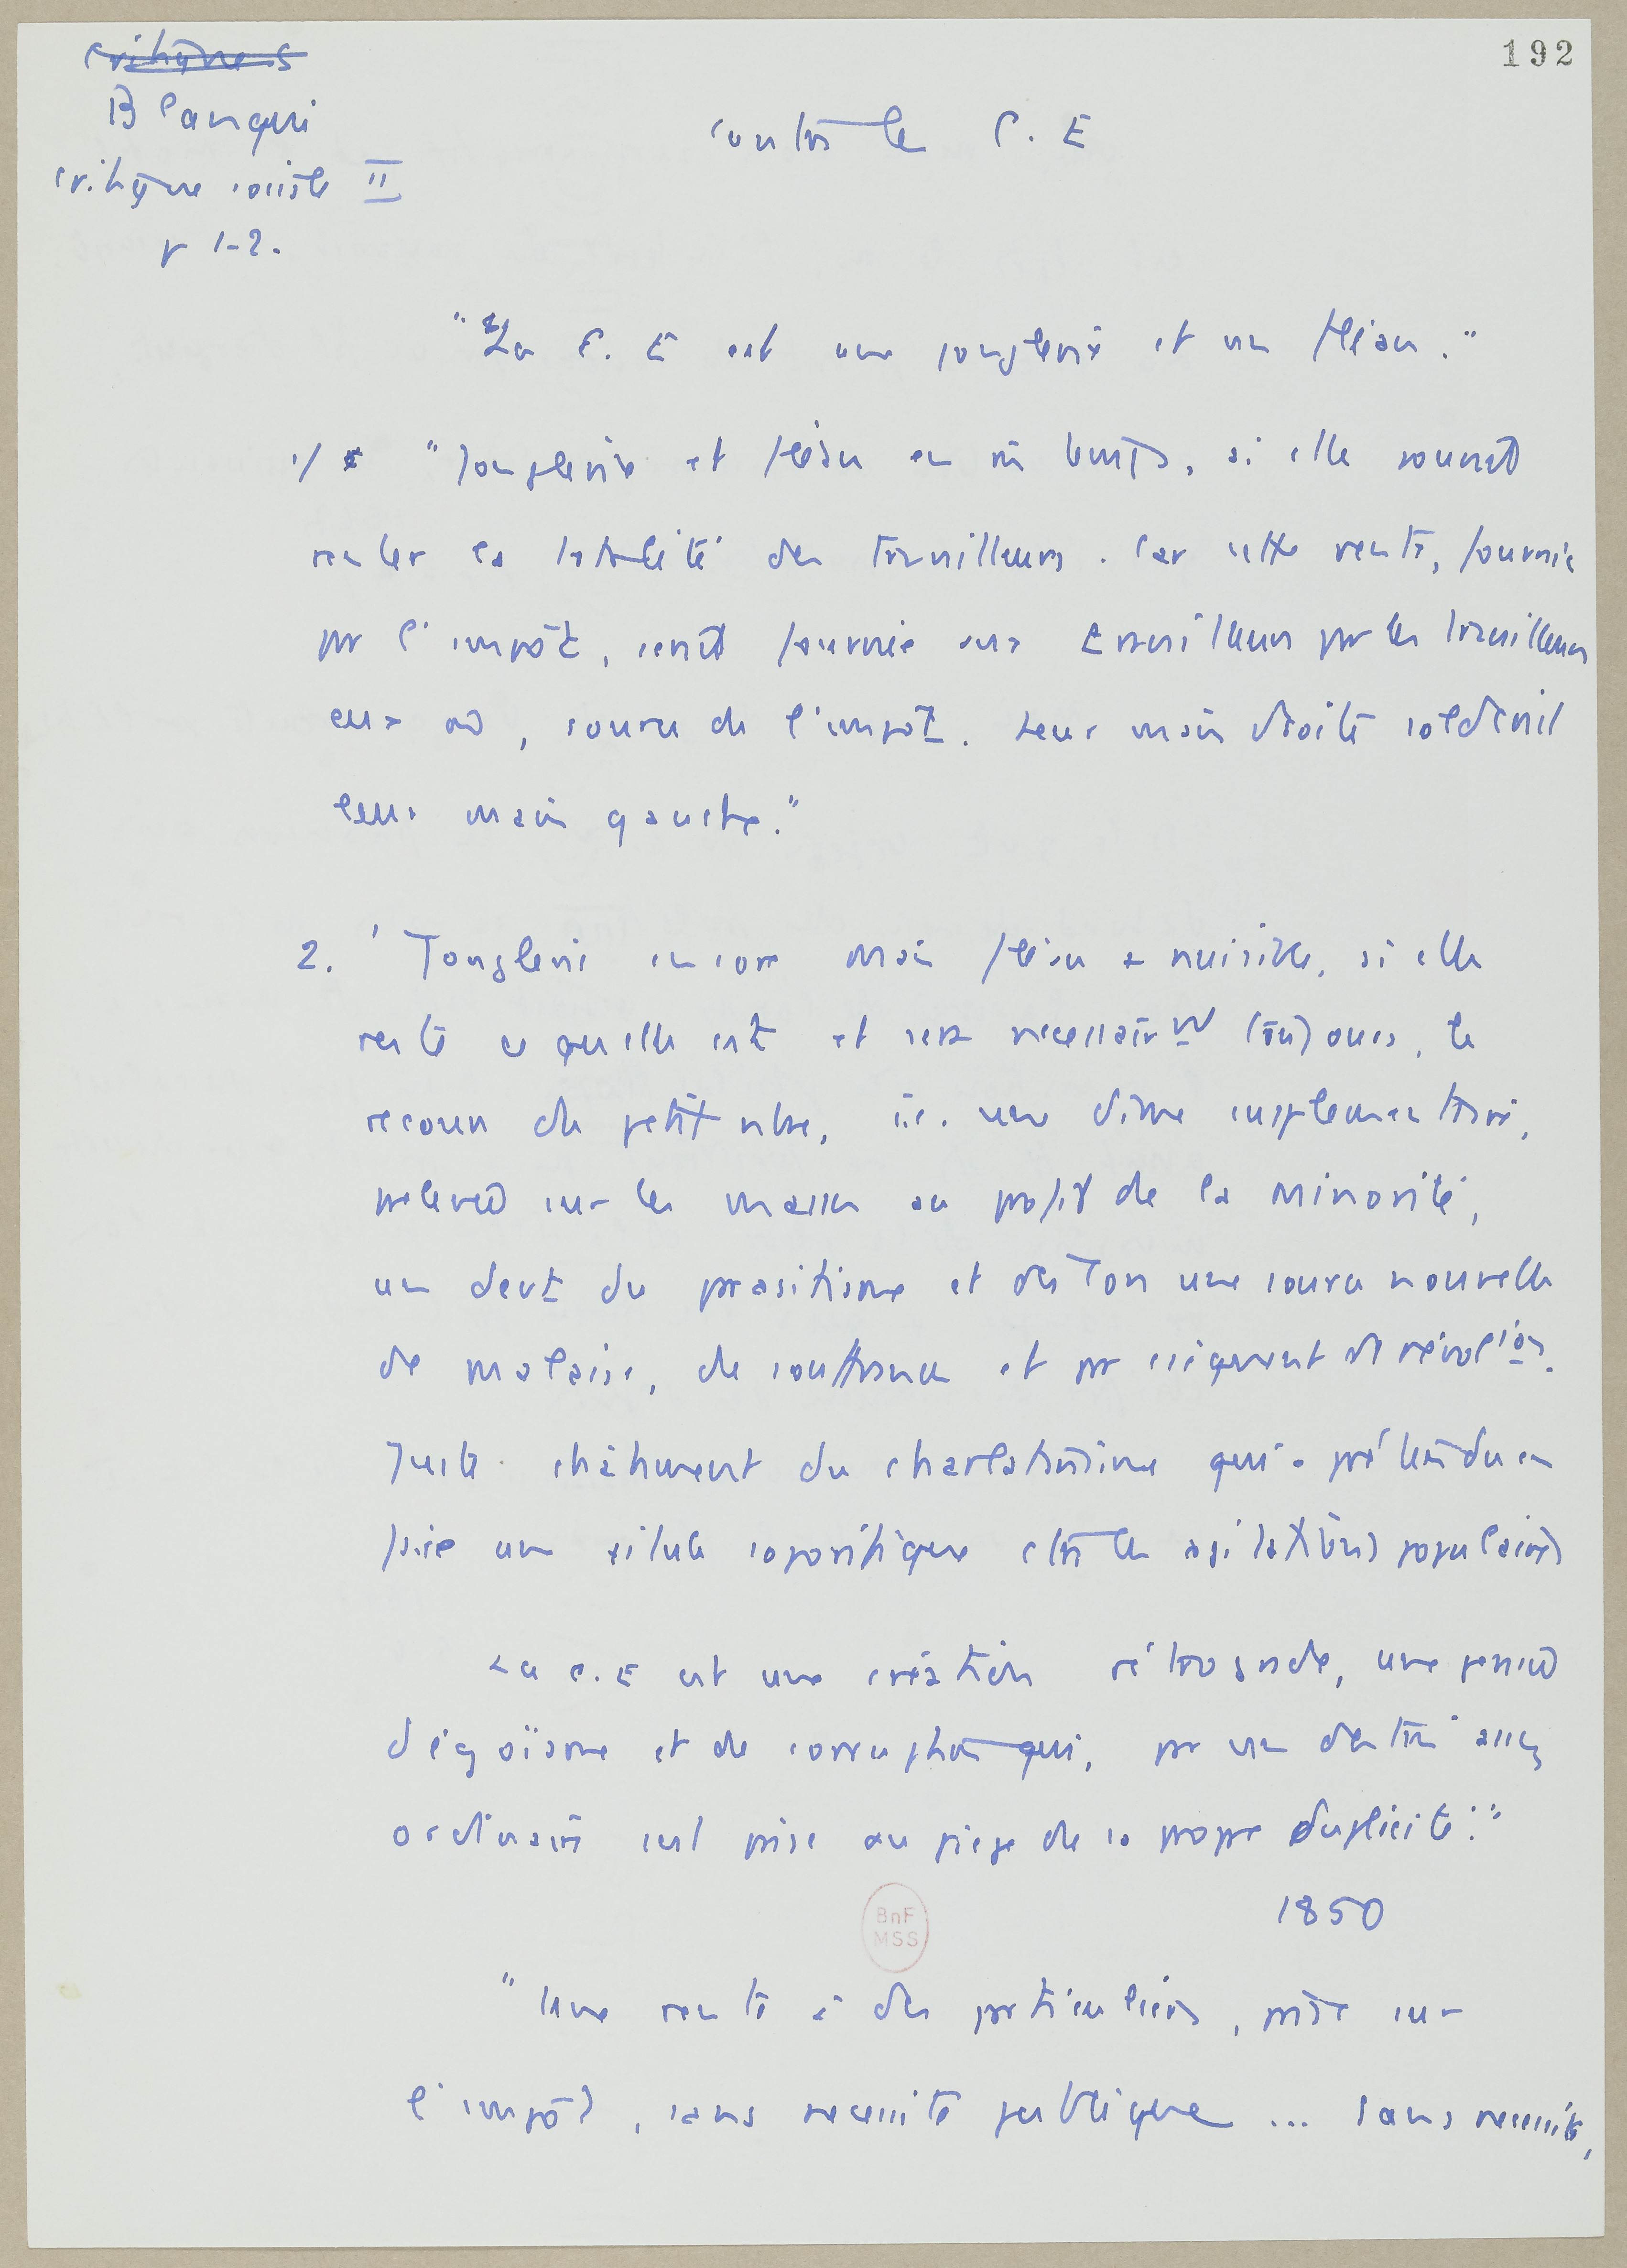 192
critiques
Blanqui
critique sociale II
p 1-2.
contre la C. E
"La C. E est une jonglerie et un fléau."
1/ "Jonglerie et fléau en m temps, si elle pouvait
renter la totalité des travailleurs. Car cette rente, fournie
par l'impôt, serait fournie aux travailleurs par les travailleurs
eux, source de l'impôt. Leur main droite solderait
leur main gauche."
2. "Jonglerie encore mais fléau + nuisible, si elle
reste ce qu'elle est et sera nécessairemt toujours, la
recours du petit nbre, i.e. une dîme supplémentaire,
prélevée sur les masses au profit de la minorité,
un du parasitisme et une source nouvelle
de malaise, de souffrance et par conséquent de révolions.
Juste châtiment du charlatanisme qui a prétendu en
faire une pilule soporifique ctre les agitations populaires
La C.E est une création rétrograde, une pensée
d'égoïsme et de corruption qui, par un destin assez
ordinaire est prise au piège de sa propre duplicité."
1850
BnF
MSS
"Une rente à des particuliers, prise sur
l'impôt, sans nécessité publique ... sans nécessité,